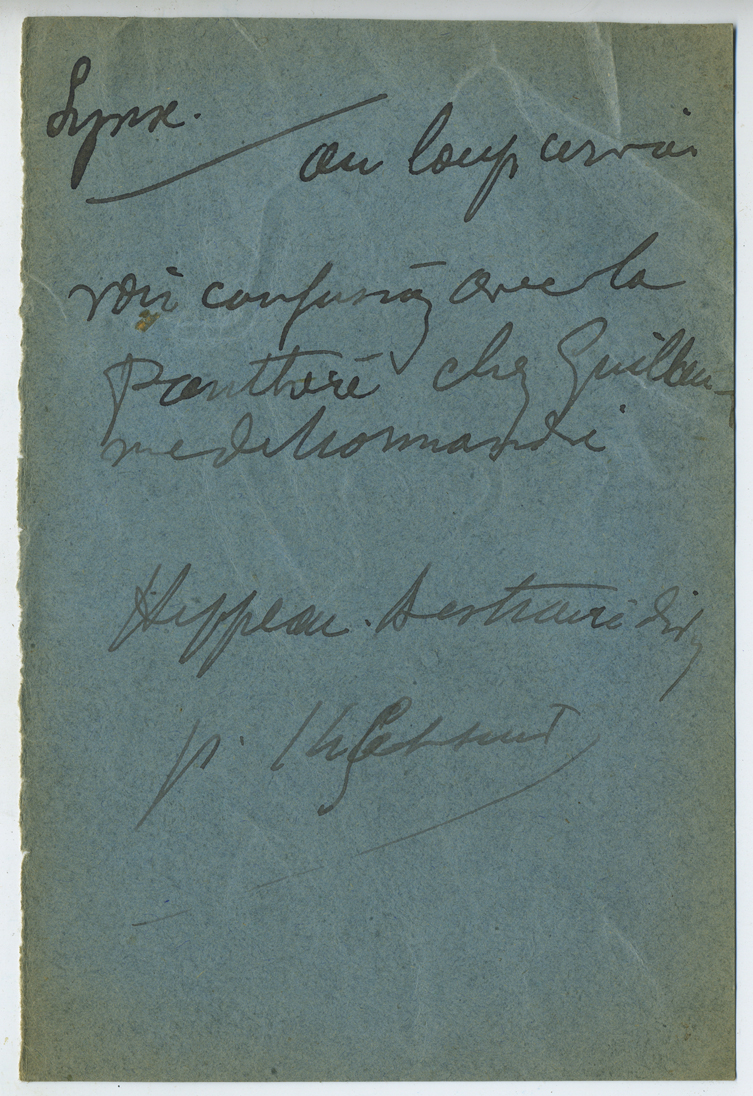 Lynx.
ou loup cervier
voir confusion avec la
Panthère chez Guillau-
me de Normandie
Hippeau. Bestiaire div
p.